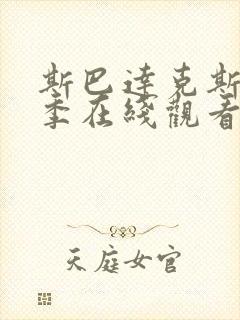 斯巴達克斯
季在綫觀看
天庭女官